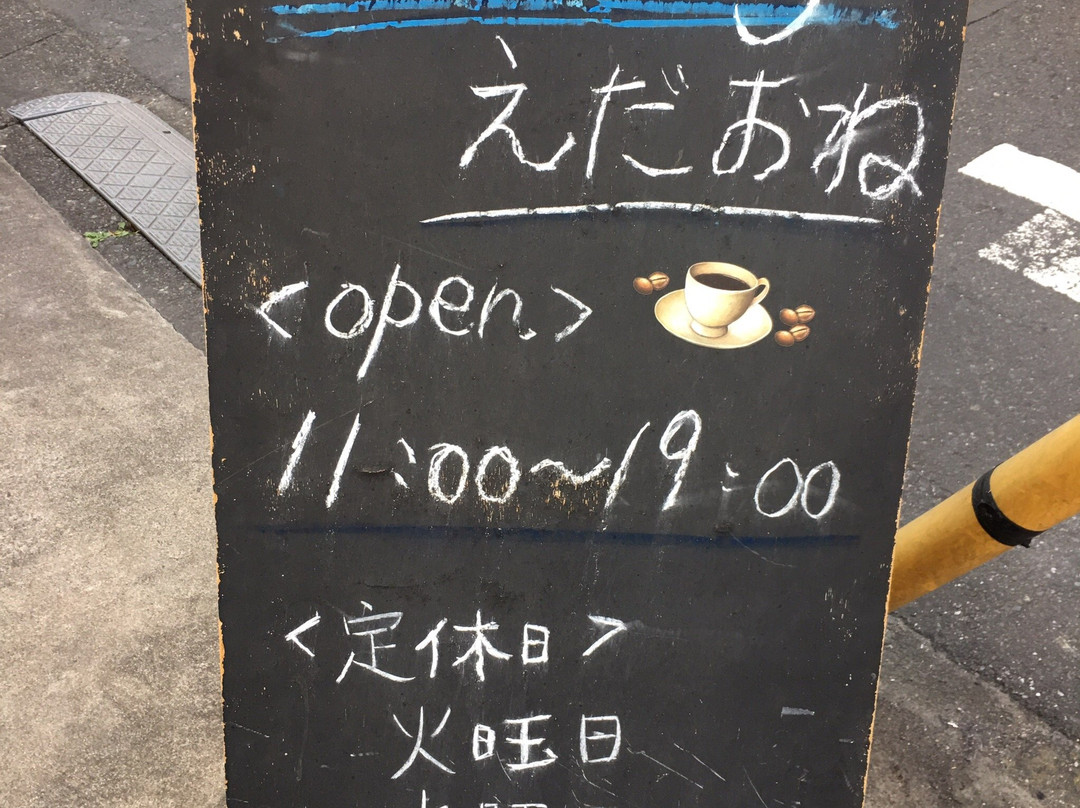 えだおね
<open>
11:00~19:00
<定休日>
火曜日